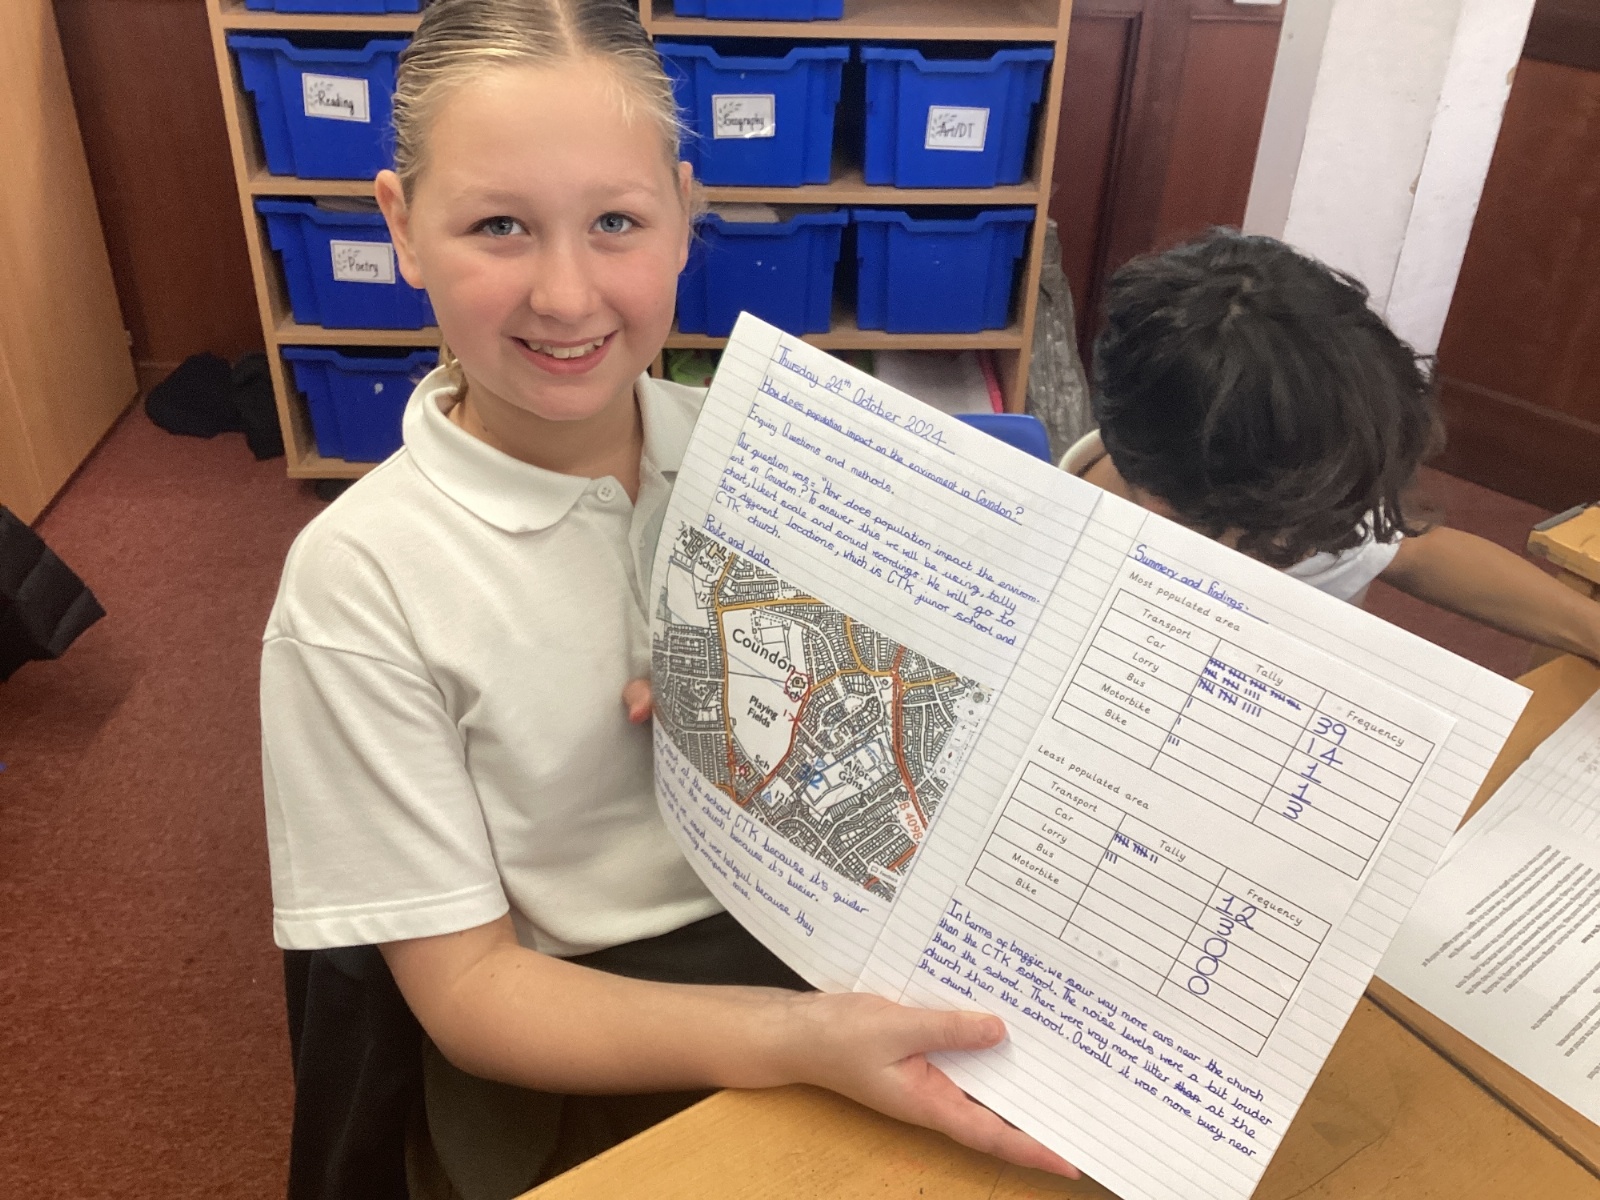 Reading
Geography
Art/DT
Poetry
Thursday 24th October 2024
How does population impact on the enviroment in Coundon?
Enquiry Questions and methods.
Our question was: "How does population impact the enviroment
in Coundon? To answer this we will be using, tally
chart, likert scale and sound recordings. We will go to
two different locations, which is CTK junior school and
CTK church.
Rate and data
Sch
Coundon
Sch
Playing
Fields
Sch
Allot
Gdns
B 4098
at the school CTK because it's quieter
and at the church because it's busier.
we used were helpful because they
Summery and findings:
Most populated area
Transport Tally Frequency
Car 39
Lorry 14
Bus 1
Motorbike 1
Bike 3
Least populated area
Transport Tally Frequency
Car 12
Lorry 3
Bus 0
Motorbike 0
Bike 0
In terms of traffic, we saw way more cars near the church
than the CTK school. The noise levels were a bit louder
than the school. There were way more litter than at the
church then the school. Overall it was more busy near
the church.